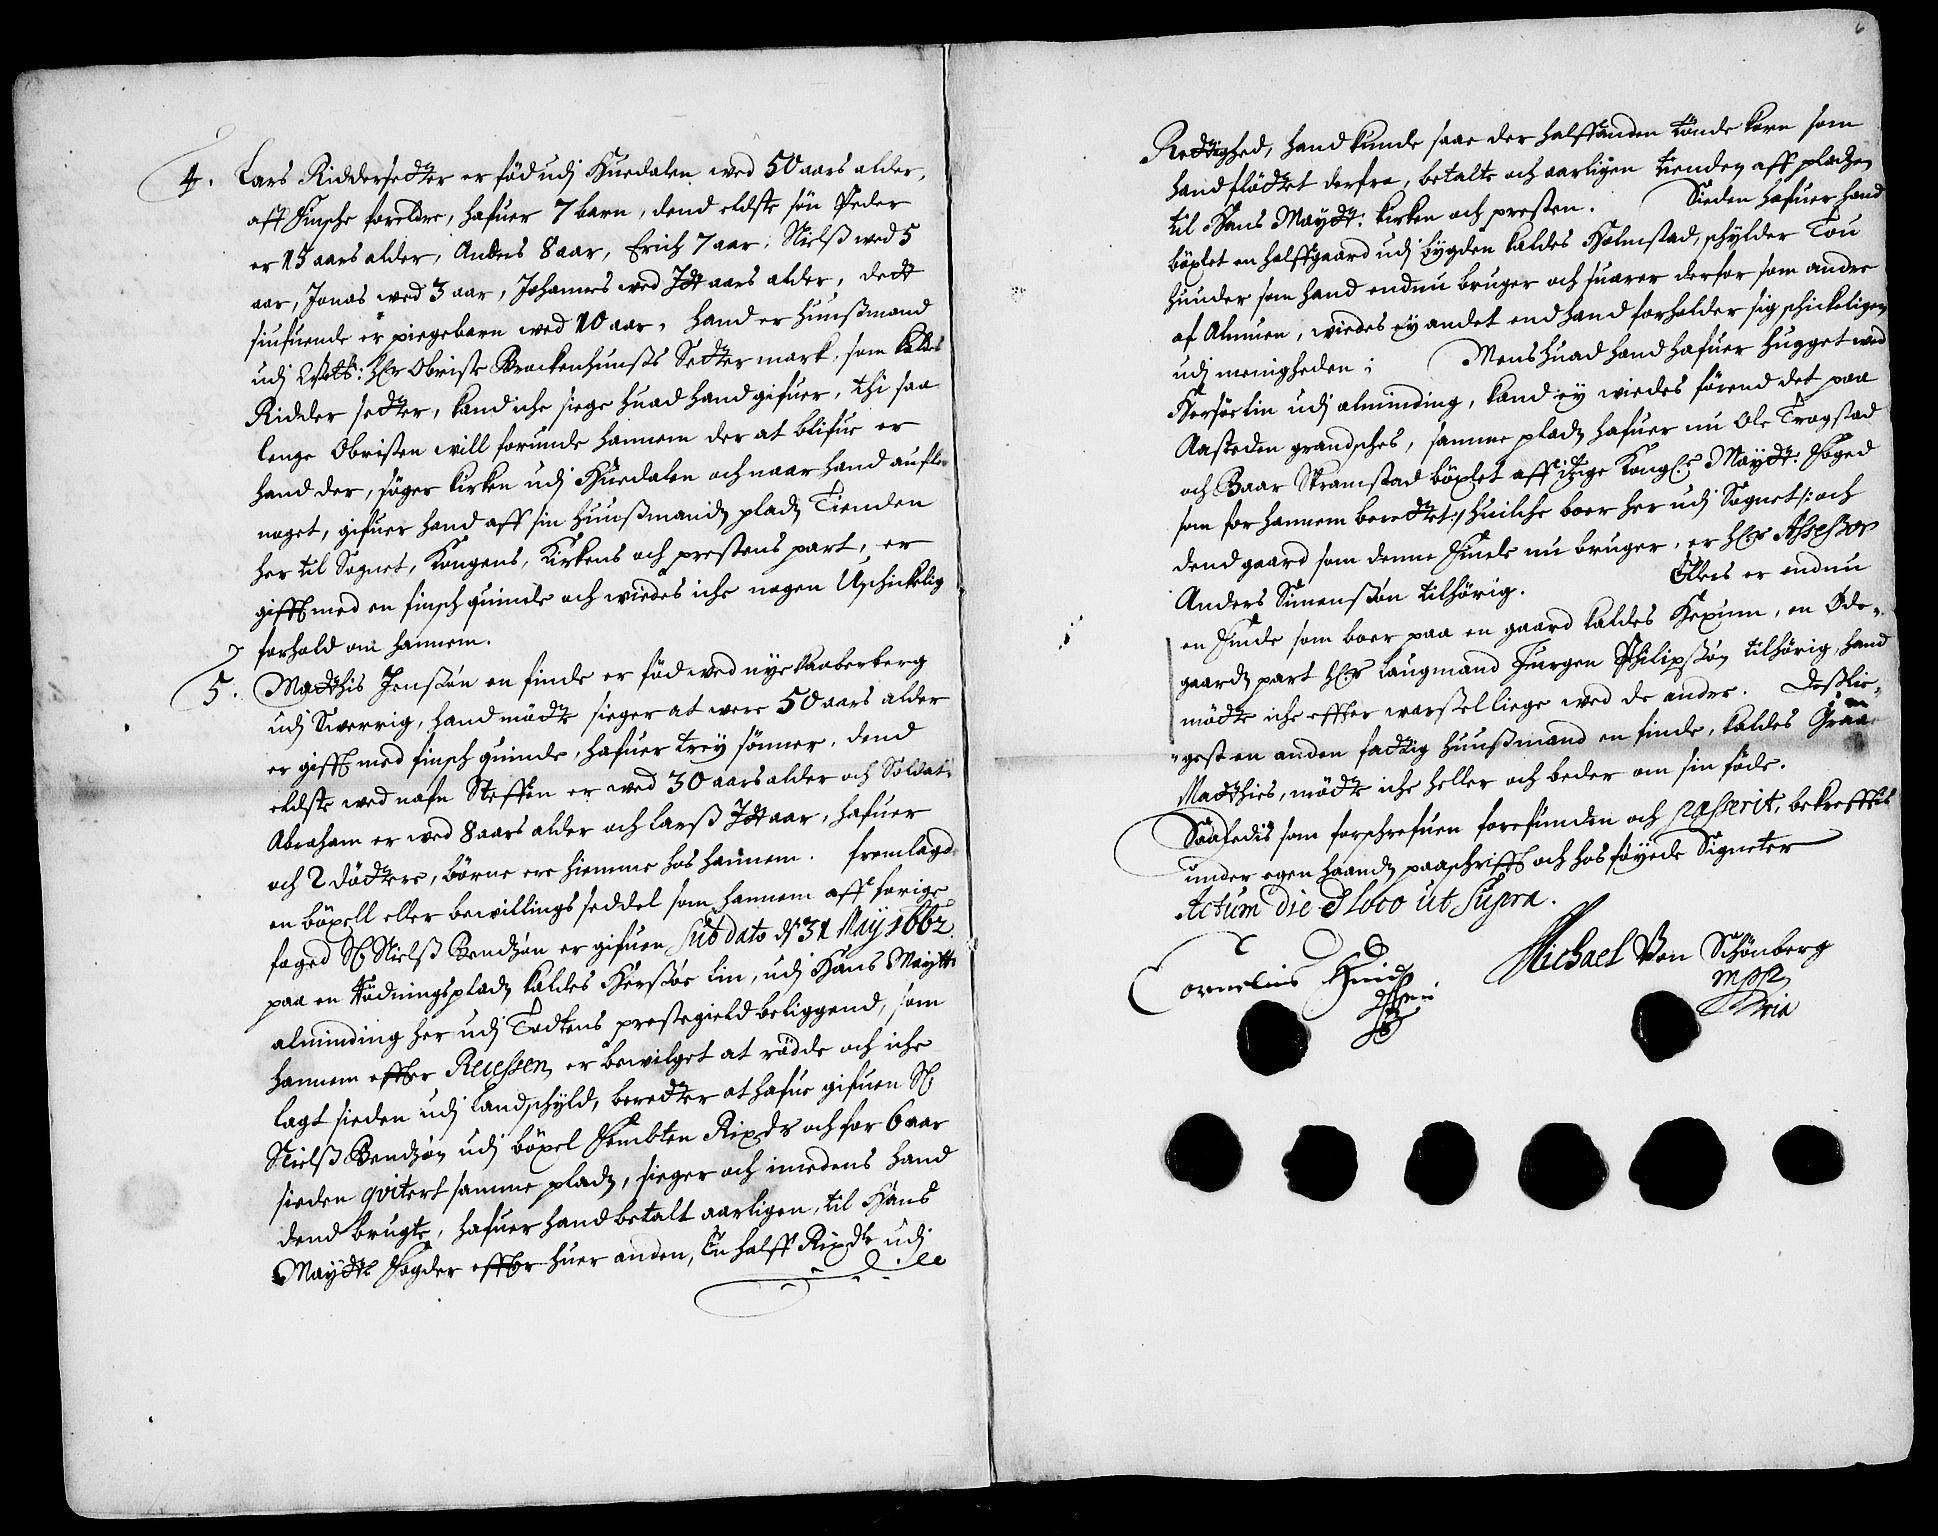 4. Lars Riddersetter er föd udj Huedalen wed 50 aars alder,
aff Finsche foreldre, hafuer 7 barn, dend eldste sön Peder
er 15 aars alder, Anders 8 aar, Erich 7 aar, Nielß wed 5
aar, Jonas wed 3 aar, Johannes wed 1½ aars alder, dett
siufuende er piegebarn wed 10 aar, hand er huußmand
udj Obriste Brockenhuußes Setter mark, som kaldes
Ridder setter, kand iche siege huad hand gifuer, thi saa
lenge Obristen will forunde hannem der at blifue er
hand der, söger kirken udj Huedalen och naar hand aufler
noget, gifuer hand aff sin huußmands pladz Tienden
her til Sognet, Kongens, Kirkens och prestens part, er
gifft med en finsch quinde och wiedes iche nogen Uschickelig
forhold om hannem.
5. Matthis Jenssön en finde er föd wed nye kaaberberg
udj Swerrig, hand mötte sieger at were 50 aars alder
er gifft med finsch quinde, hafuer trey sönner, dend
eldste wed nafn Steffen er wed 30 aars alder och Soldat,
Abraham er wed 8 aars alder och Larß 1½ aar, hafuer
och 2 döttre, börne ere hiemme hos hannem. fremlagde
en böxell eller bewillings seddel som hannem aff forige
foged Sl Nielß Bendzön er gifuen sub dato dn 31 Maÿ 1662
paa en Rödningspladz kaldes Kerssöe lin, udj Hans Maytts
alminding her udj Todtens prestegield beliggend, som
hannem effter Recessen er bewilget at rödde och iche
lagt sieden udj landschyld, beretter at hafue gifuen Sl
Nielß Bendzön udj böxel Fembten Rixdr och for 6 aar
sieden qvitert samme pladz, sieger och imedens hand
dend brugte, hafuer hand betalt aarligen, til Hans
Maytts Fogder effter huer anden, En halff Rixdr udj
Rettighed, hand kunde saae der halffanden tönde korn som
hand flöttet derfra, betalte och aarligen tienden aff pladzen
til Hans Maytt: kirken och presten. Sieden hafuer hand
böxlet en halffgaard udj bygden kaldes Holmstad, schylder Tou
huuder som hand endnu bruger och suarer derfor som andre
af Almuen, wiedes ey andet end hand forholder sig schickeligen
udj menigheden; Mens huad hand hafuer hugget wed
Kersöelin udj alminding, kand ey wiedes förend det paa
Aasteden grandsches, samme pladz hafuer nu Ole Trogstad
och Baar Skramstad böxlet aff itzige Kongl: Maytt: Foged
som for hannem berettet:/ huilche boer her udj Sognet /: och
dend gaard som denne Finde nu bruger, er her Assessor
Anders Simenssön tilhörig. Ellers er endnu
en Finde som boer paa en gaard kaldes Hexum, en Öde-
gaardz part her Laugmand Jurgen Philipssön tilhörig, hand
mötte iche effter warssel liege wed de andre. Dessliegest
en anden fattig huußmand en finde, kaldes Graa
Matthies, mötte iche heller och beder om sin föde.
Saaledis som forschrefuen forefunden och passerit, bekrefftes
under egen haandz paaschrifft och hos föyede Signeter
Actum die & loco ut supra.
Cornelius Michael Von Schönberg
mpp